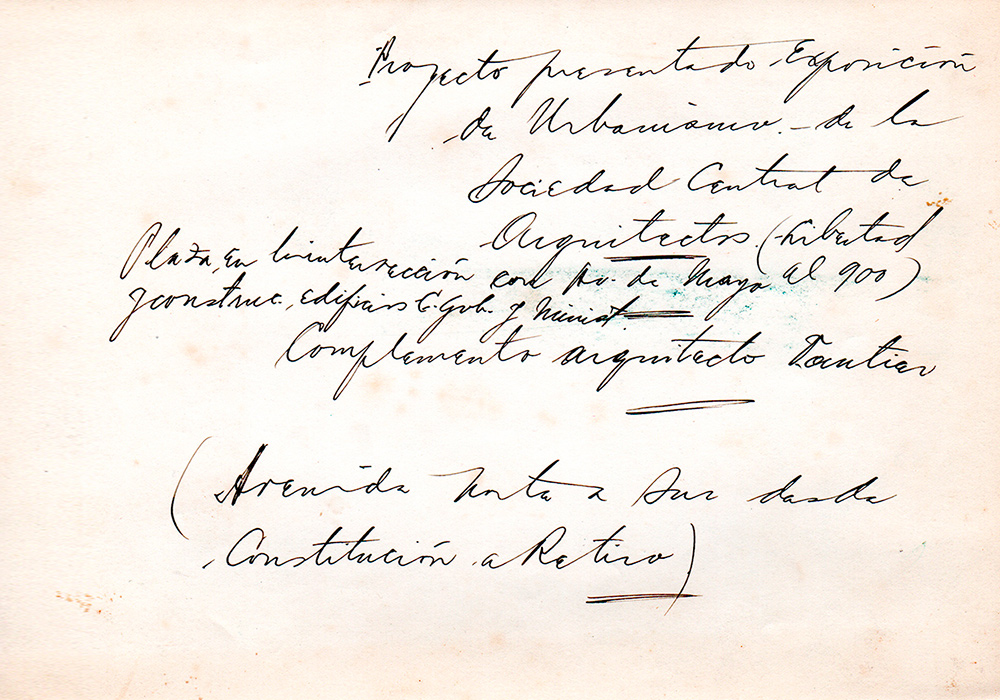 Proyecto presentado Exposición
de Urbanismo - de la
Sociedad Central de
Arquitectos (Libertad
al 900)
Plaza, en la intersección con Av. de Mayo
y construc. edificios C. Gob. y Minist.
Complemento arquitecto
(Avenida Norte a Sur desde
Constitución a Retiro)